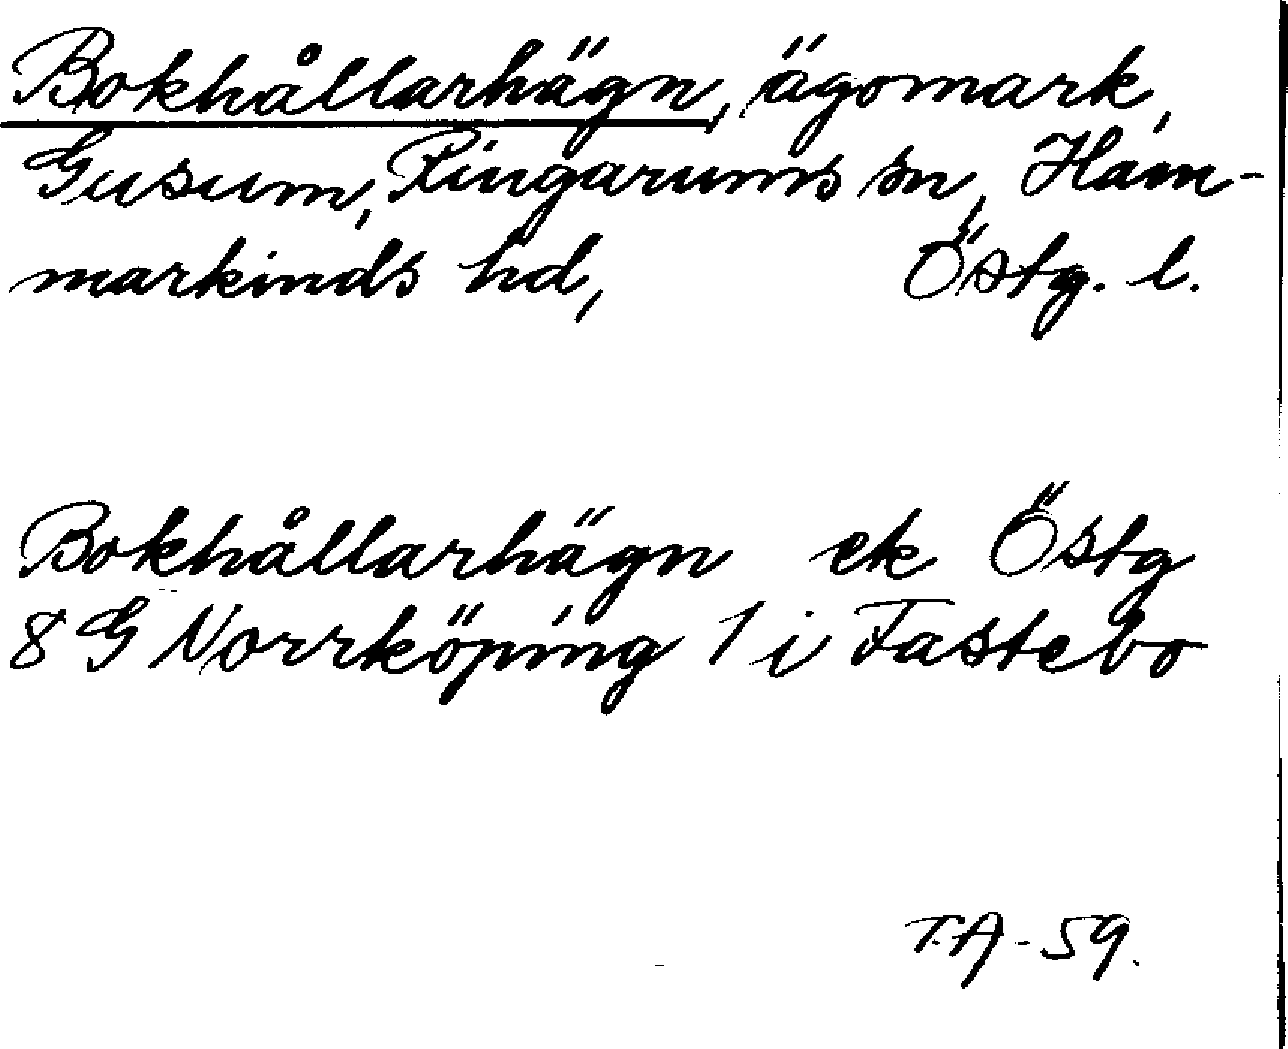 Bokhållarhägn, ägomark,
Gusum, Ringarums sn, Ham-
markinds hd, Östg. l.
Bokhållarhägn ek Östg
8 G Norrköping 1 i Fastebo
T.A-59.